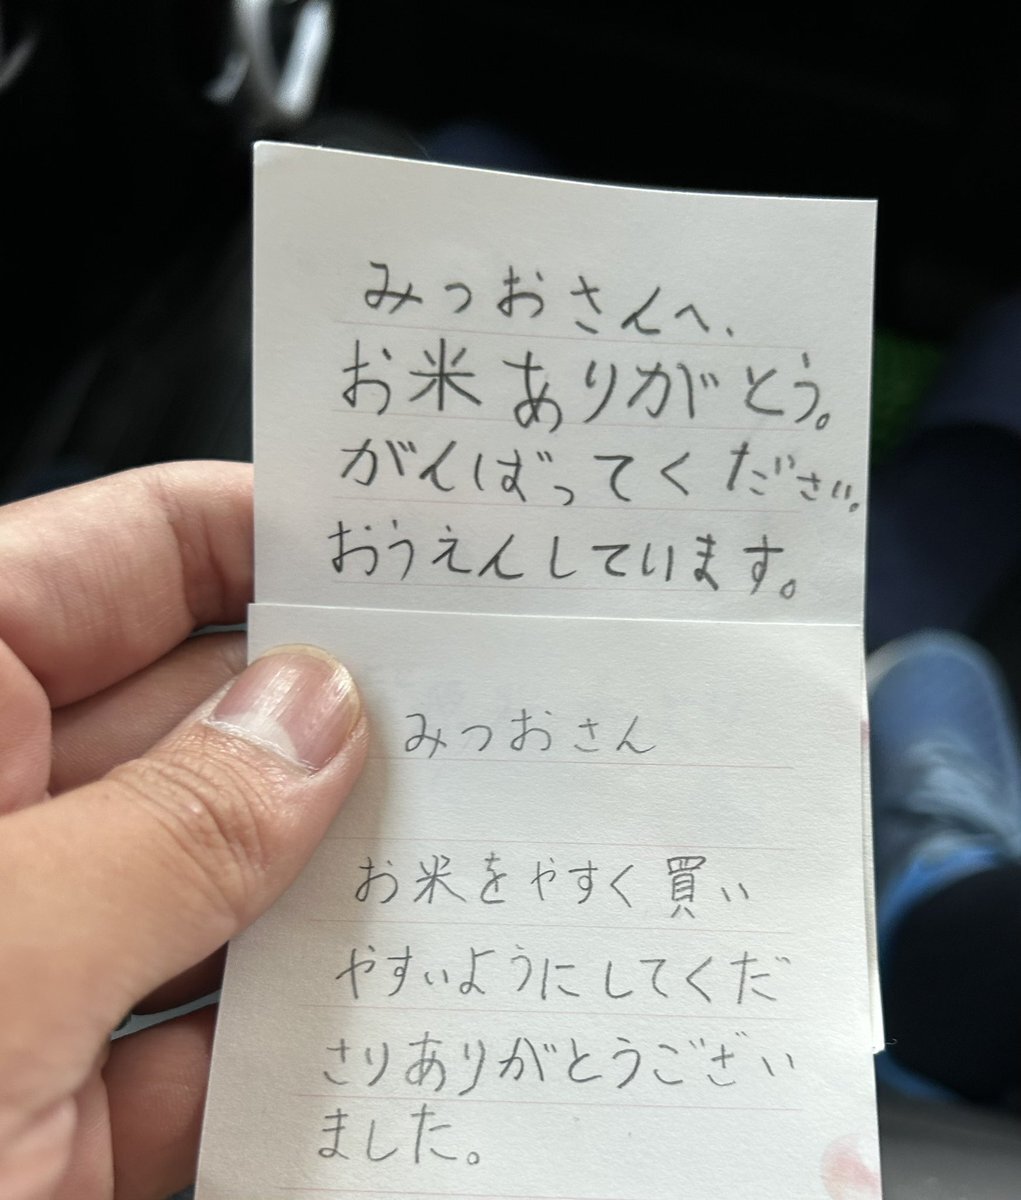 みつおさんへ、
お米ありがとう。
がんばってください。
おうえんしています。
みつおさん
お米をやすく買い
やすいようにしてくだ
さりありがとうござい
ました。